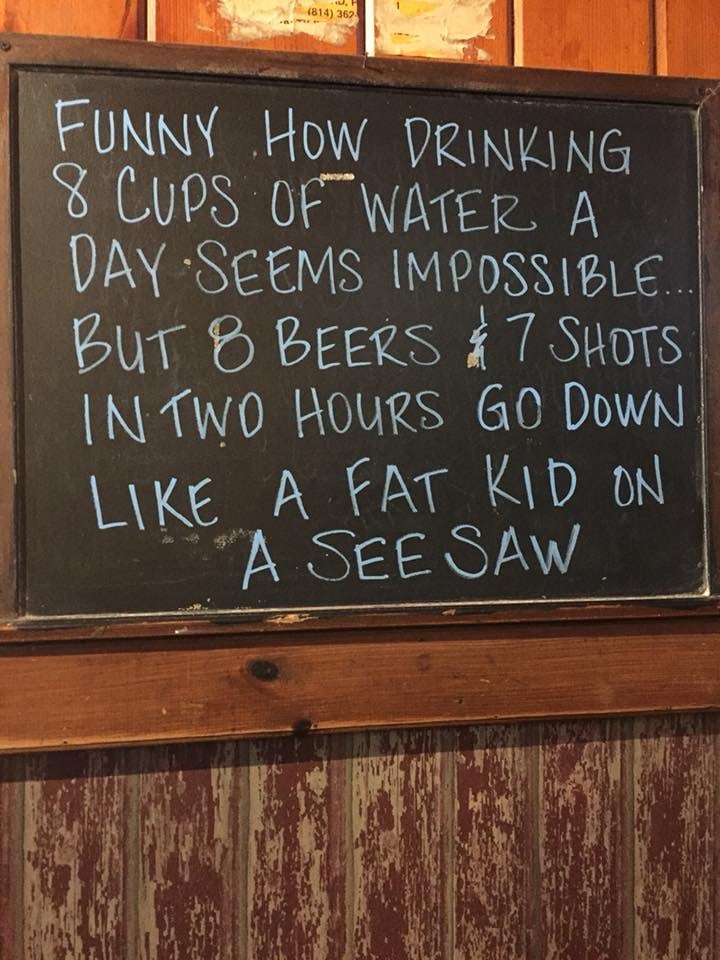 (814) 362
1
FUNNY HOW DRINKING
8 CUPS OF WATER A
DAY SEEMS IMPOSSIBLE...
BUT 8 BEERS & 7 SHOTS
IN TWO HOURS GO DOWN
LIKE A FAT KID ON
A SEESAW